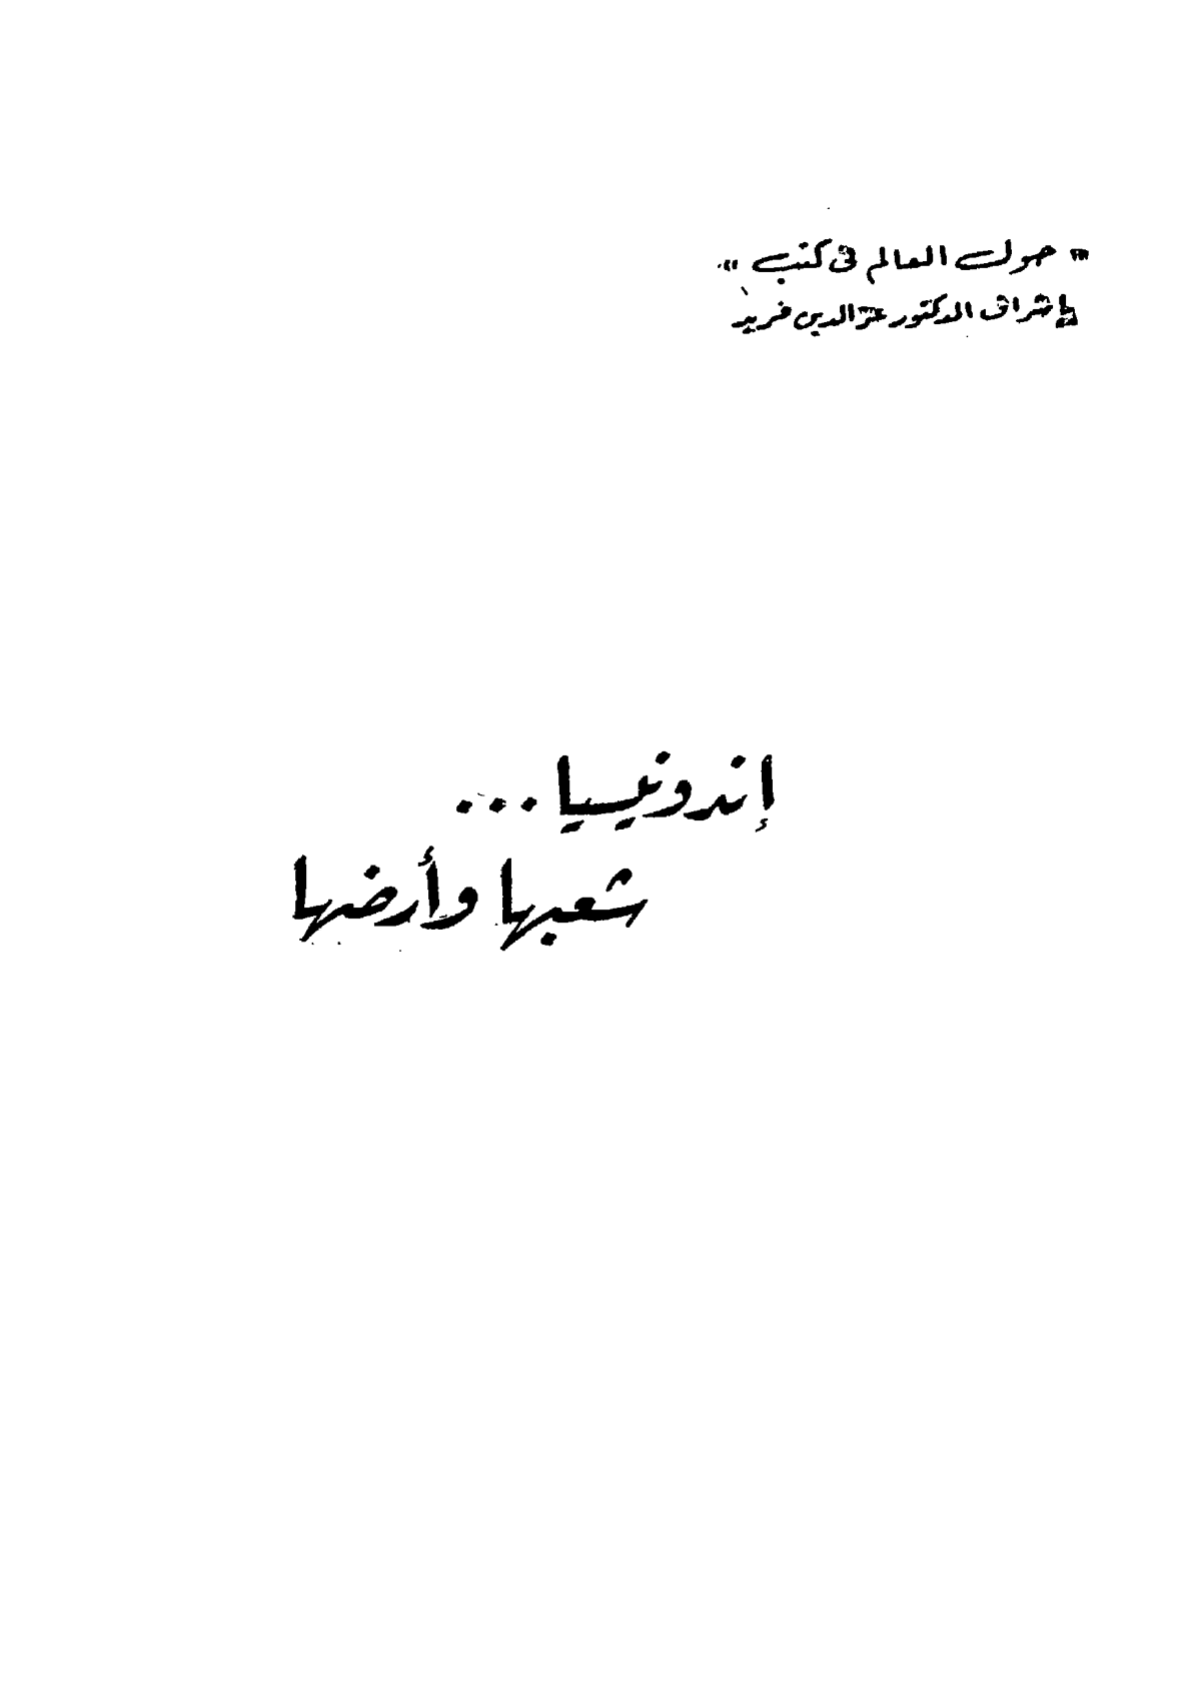 « حول العالم فى كتب »
بإشراف الدكتور عز الدين فريد
إندونيسيا ...
شعبها وأرضها